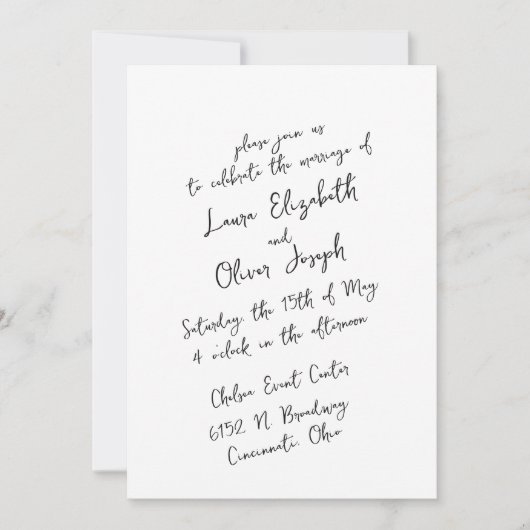 please join us
to celebrate the marriage of
Laura Elizabeth
and
Oliver Joseph
Saturday, the 15th of May
4 o'clock in the afternoon
Chelsea Event Center
6152 N. Broadway
Cincinnati, Ohio